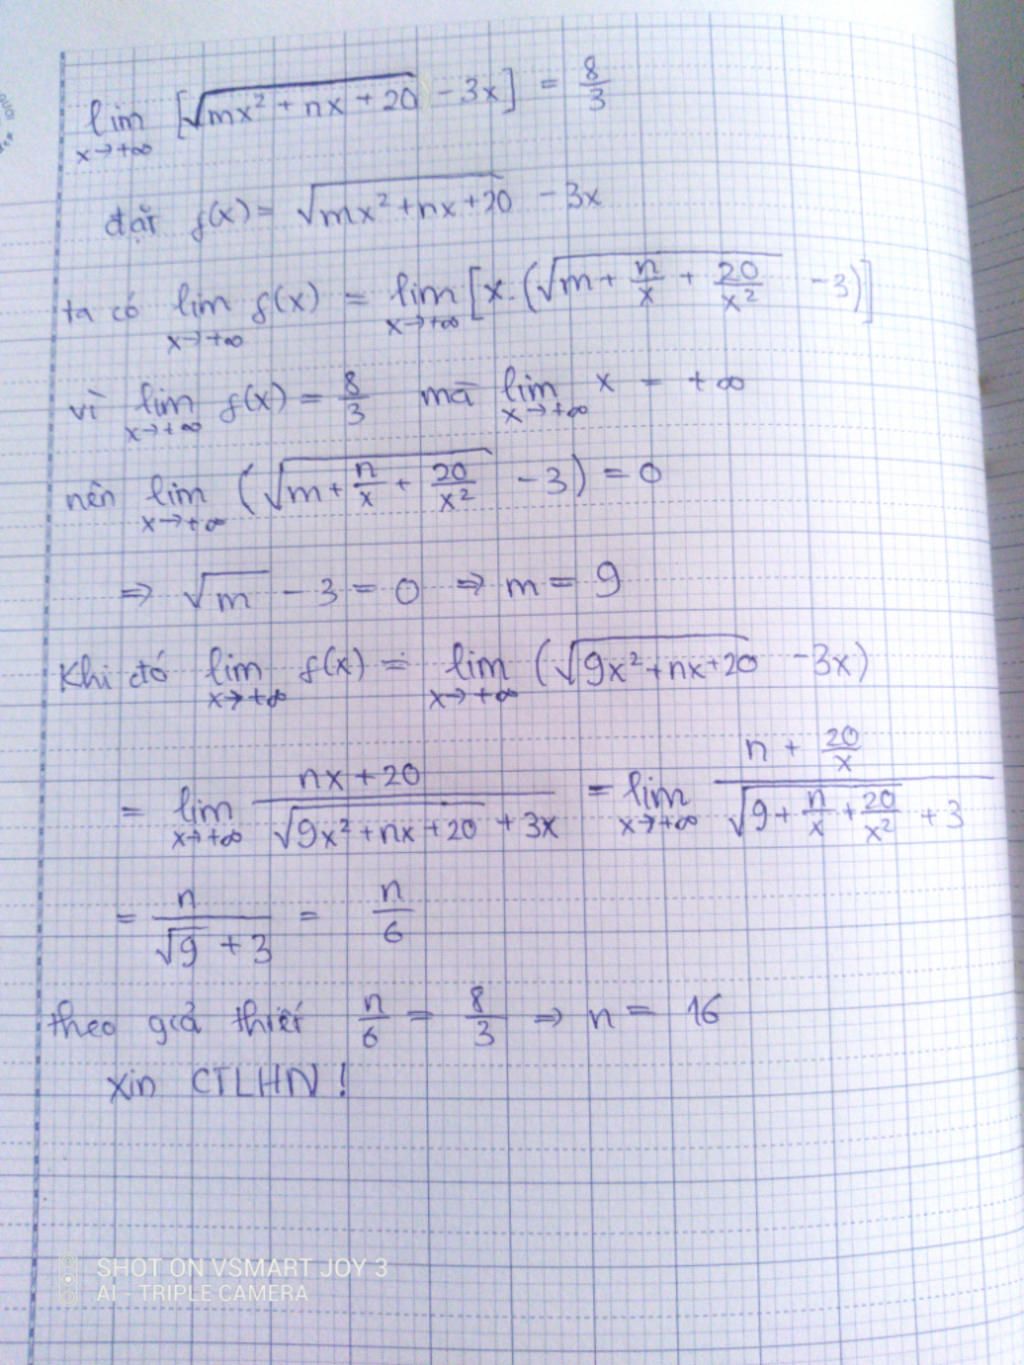 lim [√(mx² + nx + 20) - 3x] = 8/3
x→+∞
đặt f(x) = √(mx² + nx + 20) - 3x
ta có lim f(x) = lim [x. (√(m + n/x + 20/x²) - 3)]
x→+∞ x→+∞
vì lim f(x) = 8/3 mà lim x = +∞
x→+∞ x→+∞
nên lim (√(m + n/x + 20/x²) - 3) = 0
x→+∞
⇒ √m - 3 = 0 ⇒ m = 9
Khi đó lim f(x) = lim (√(9x² + nx + 20) - 3x)
x→+∞ x→+∞
= lim (nx + 20)/(√(9x² + nx + 20) + 3x) = lim (n + 20/x)/(√(9 + n/x + 20/x²) + 3)
x→+∞ x→+∞
= n/(√9 + 3) = n/6
theo giả thiết n/6 = 8/3 ⇒ n = 16
Xin CTLHN !
SHOT ON VSMART JOY 3
AI - TRIPLE CAMERA